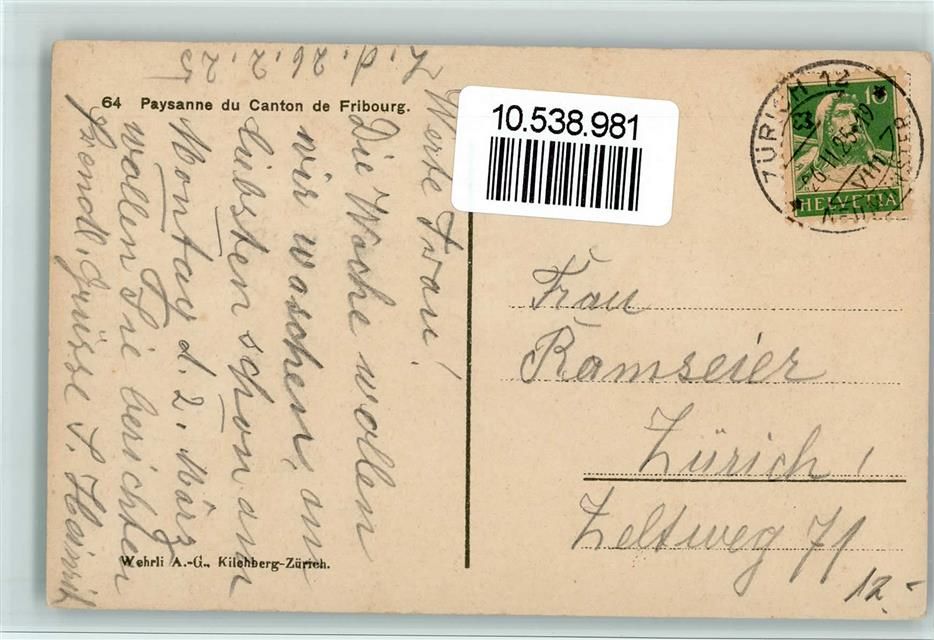 64 Paysanne du Canton de Fribourg.
Z. d. 26. 2. 25
Werte Frau!
Die Woche wollen
wir waschen, am
liebsten schon am
Montag d. 2. März
wollen Sie berichten
Freundl. Grüsse S. Heinrich
Wehrli A.-G., Kilchberg-Zürich.
10.538.981
ZÜRICH 12
NEUMÜNSTER
10
HELVETIA
Frau
Ramseier
Zürich!
Zeltweg 71
12.-